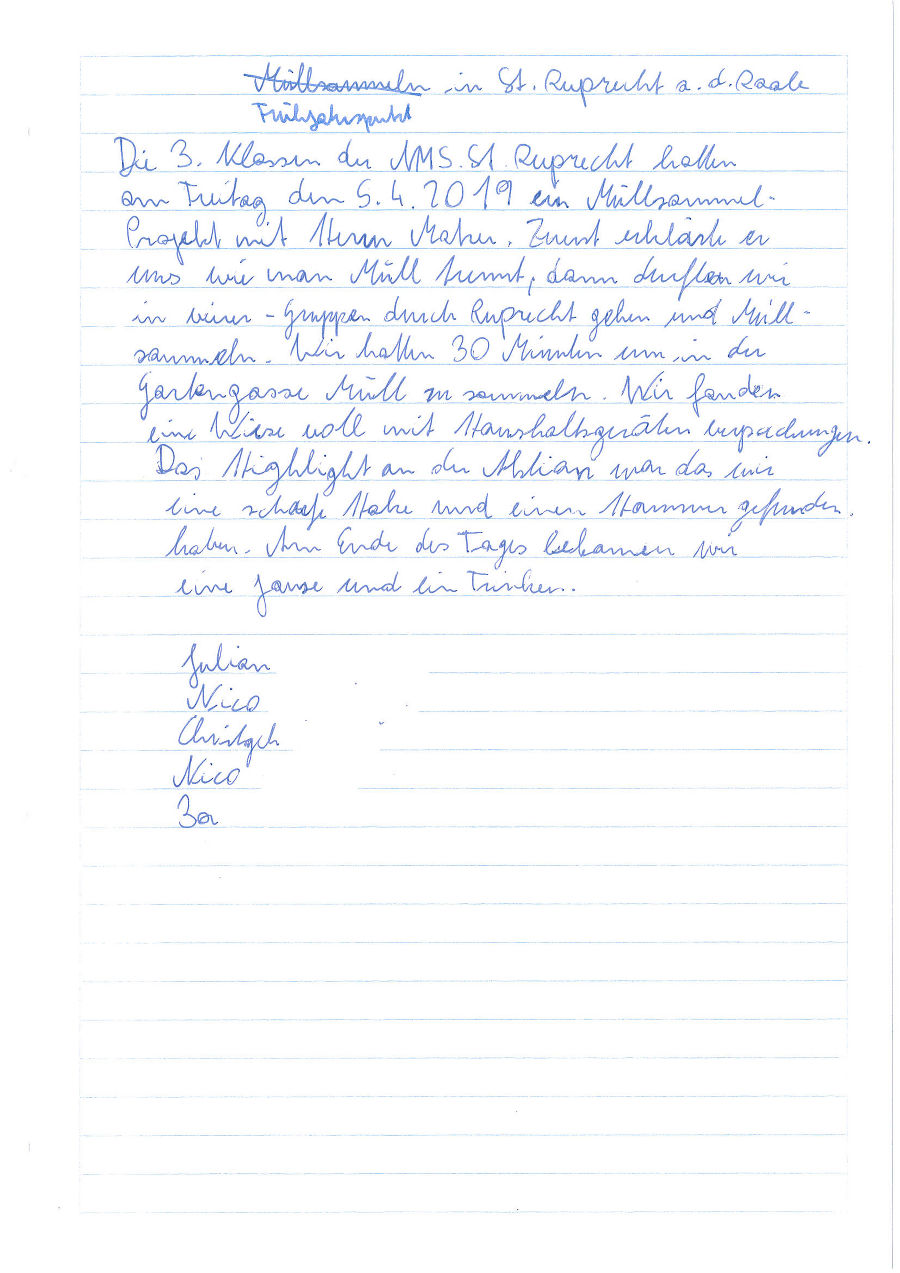 Müllsammeln in St. Ruprecht a. d. Raale
Frühjahrsputz
Die 3. Klassen der NMS. St. Ruprecht hatten
am Freitag den 5.4.2019 ein Müllsammel-
Projekt mit Herrn Maier. Zuerst erklärte er
uns wie man Müll trennt, dann durften wir
in vierer - Gruppen durch Ruprecht gehen und Müll-
sammeln. Wir hatten 30 Minuten um in der
Gartengasse Müll zu sammeln. Wir fanden
eine Wiese voll mit Haushaltsgeräten verpackungen.
Das Highlight an der Aktion war das wir
eine scharfe Hake und einen Hammer gefunden.
haben. Am Ende des Tages bekamen wir
eine Jause und ein Trinken.
Julian
Nico
Christoph
Nico
3a